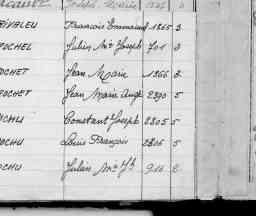 RIVALEU François Emmanuel 1865 3
POCHEL Julien Mie Joseph 701 3
POCHET Jean Marie 1966 3
POCHET Jean Marie Ange 2890 5
POCHU Constant Joseph 2805 5
POCHU Louis François 2806 5
POCHU Julien Mie Jh 916 2